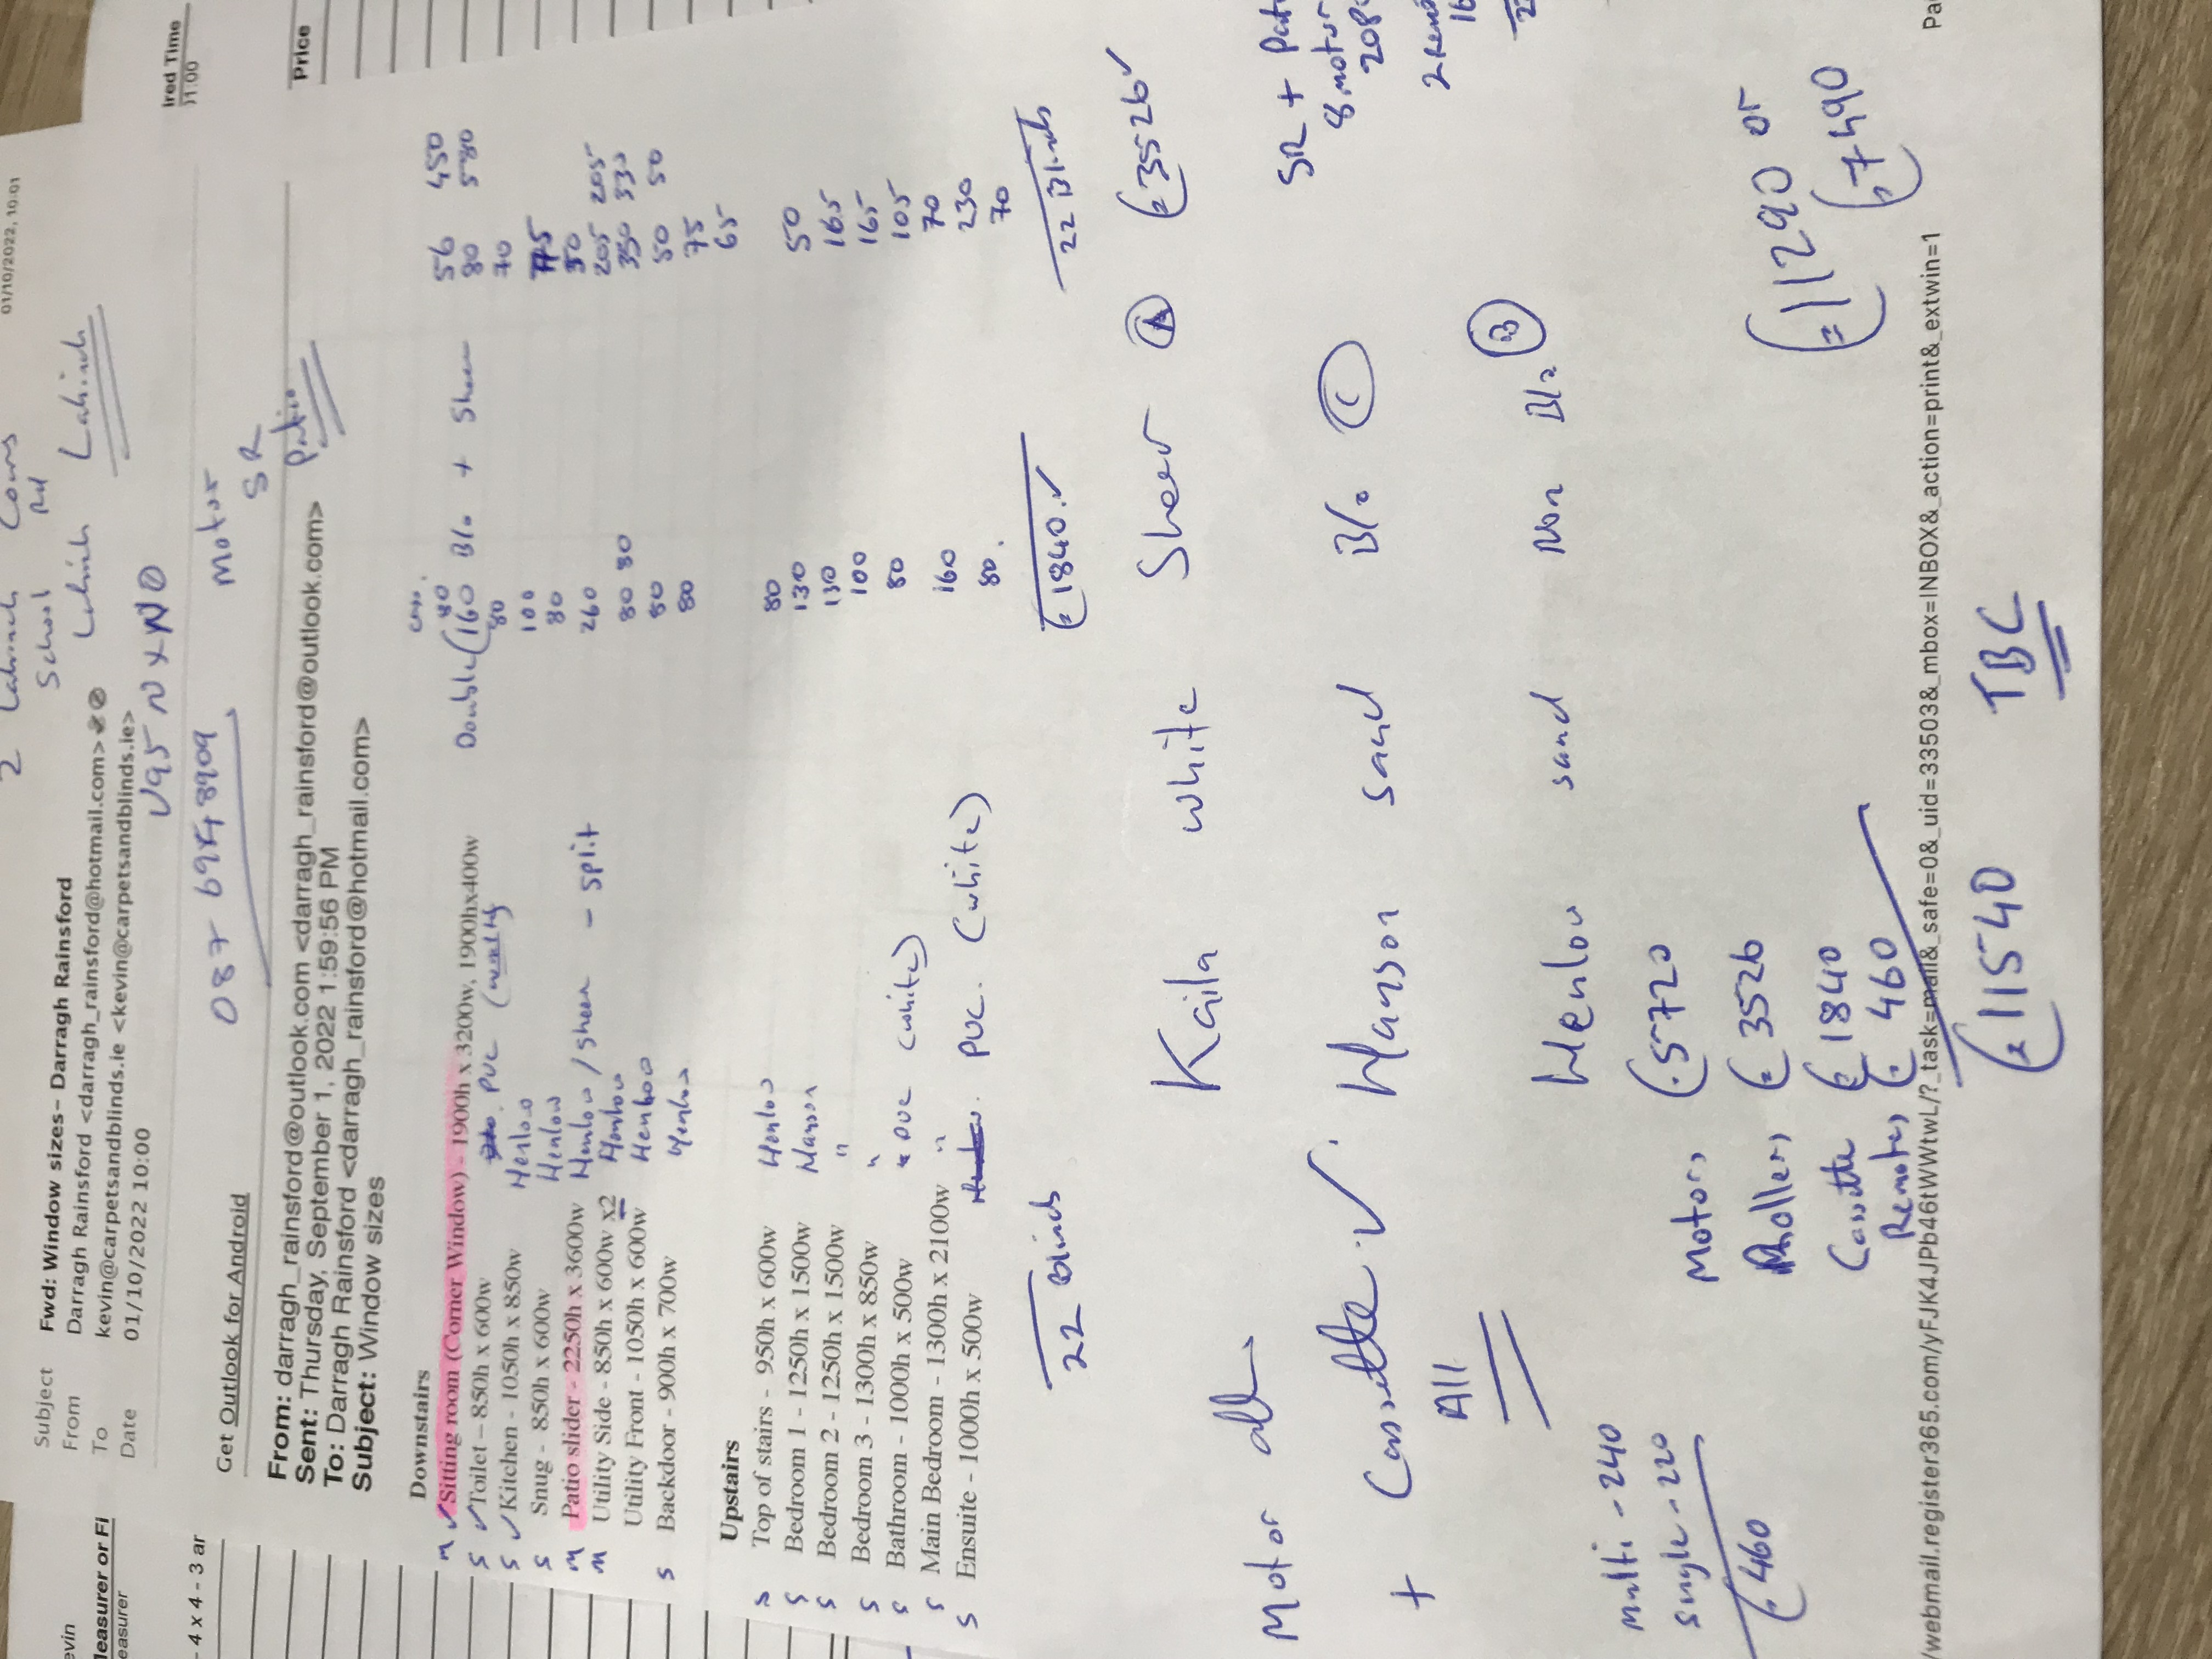 01/10/2022, 10:01
2 Lahinch Cows
School Rd
Lahinch Lahinch
Subject Fwd: Window sizes- Darragh Rainsford
From Darragh Rainsford <darragh_rainsford@hotmail.com>
To kevin@carpetsandblinds.ie <kevin@carpetsandblinds.ie>
Date 01/10/2022 10:00
V95 N X
087 6948909
Motor
SR
Patio
Get Outlook for Android
From: darragh_rainsford@outlook.com <darragh_rainsford@outlook.com>
Sent: Thursday, September 1, 2022 1:59:56 PM
To: Darragh Rainsford <darragh_rainsford@hotmail.com>
Subject: Window sizes
ired Time
11:00
Price
evin
Measurer or Fi
easurer
- 4 x 4 - 3 ar
Downstairs
M ✓ Sitting room (Corner Window) - 1900h x 3200w, 1900hx400w Double (160 Blo + Sheer 56 450
80 580
S ✓ Toilet – 850h x 600w PVC 80 70
S ✓ Kitchen - 1050h x 850w Henlow 100 75
S Snug - 850h x 600w Henlow 80 50
M Patio slider - 2250h x 3600w Henlow / Sheer - split 260 205 205
M Utility Side - 850h x 600w x2 Henlow 80 80 330 330
Utility Front - 1050h x 600w Henlow 80 50 50
S Backdoor - 900h x 700w Henlow 80 75
65
Upstairs
S Top of stairs - 950h x 600w Henlow 80 50
S Bedroom 1 - 1250h x 1500w Manson 130 165
S Bedroom 2 - 1250h x 1500w " 130 165
S Bedroom 3 - 1300h x 850w " 100 105
S Bathroom - 1000h x 500w " PVC (white) 80 70
S Main Bedroom - 1300h x 2100w " 160 230
S Ensuite - 1000h x 500w PVC. (white) 80. 70
22 Blinds €1840.✓ 22 Blinds
Kaila white Sheer (A) €3526✓
Motor all
+ Cassette.✓. Manson sand Blo (C)
All
SR +
8 motor
Henlow sand Non Blo (B)
Multi - 240
Single - 220
€460
Motors €5720
Rollers €3526
Cassette €1840
Remotes € 460
€11540 TBC
€11290 or
€7490
/webmail.register365.com/yFJK4JPb46tWWtwL/?_task=mail&_safe=0&_uid=33503&_mbox=INBOX&_action=print&_extwin=1